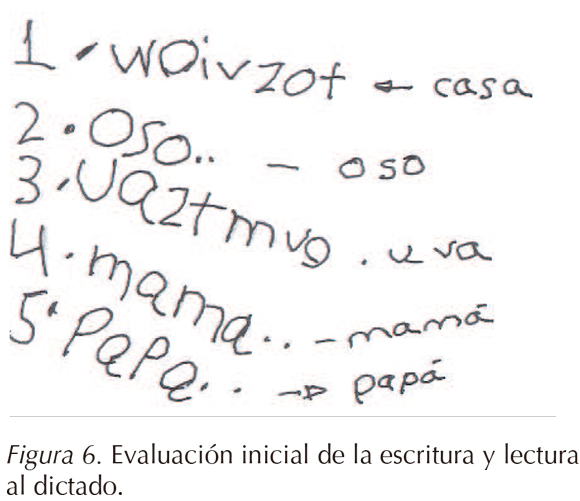 1. woivzot ← casa
2. Oso.. - oso
3. Uaztmvo . uva
4. mama.. - mamá
5. PaPa.. → papá
Figura 6. Evaluación inicial de la escritura y lectura
al dictado.